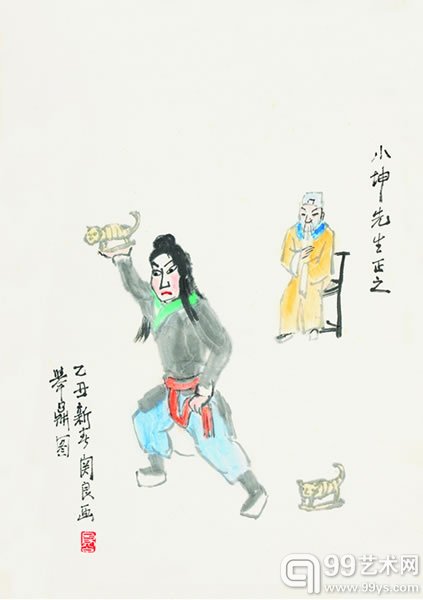 小坤先生正之
乙丑新春关良画
举鼎图
99艺术网
www.99ys.com